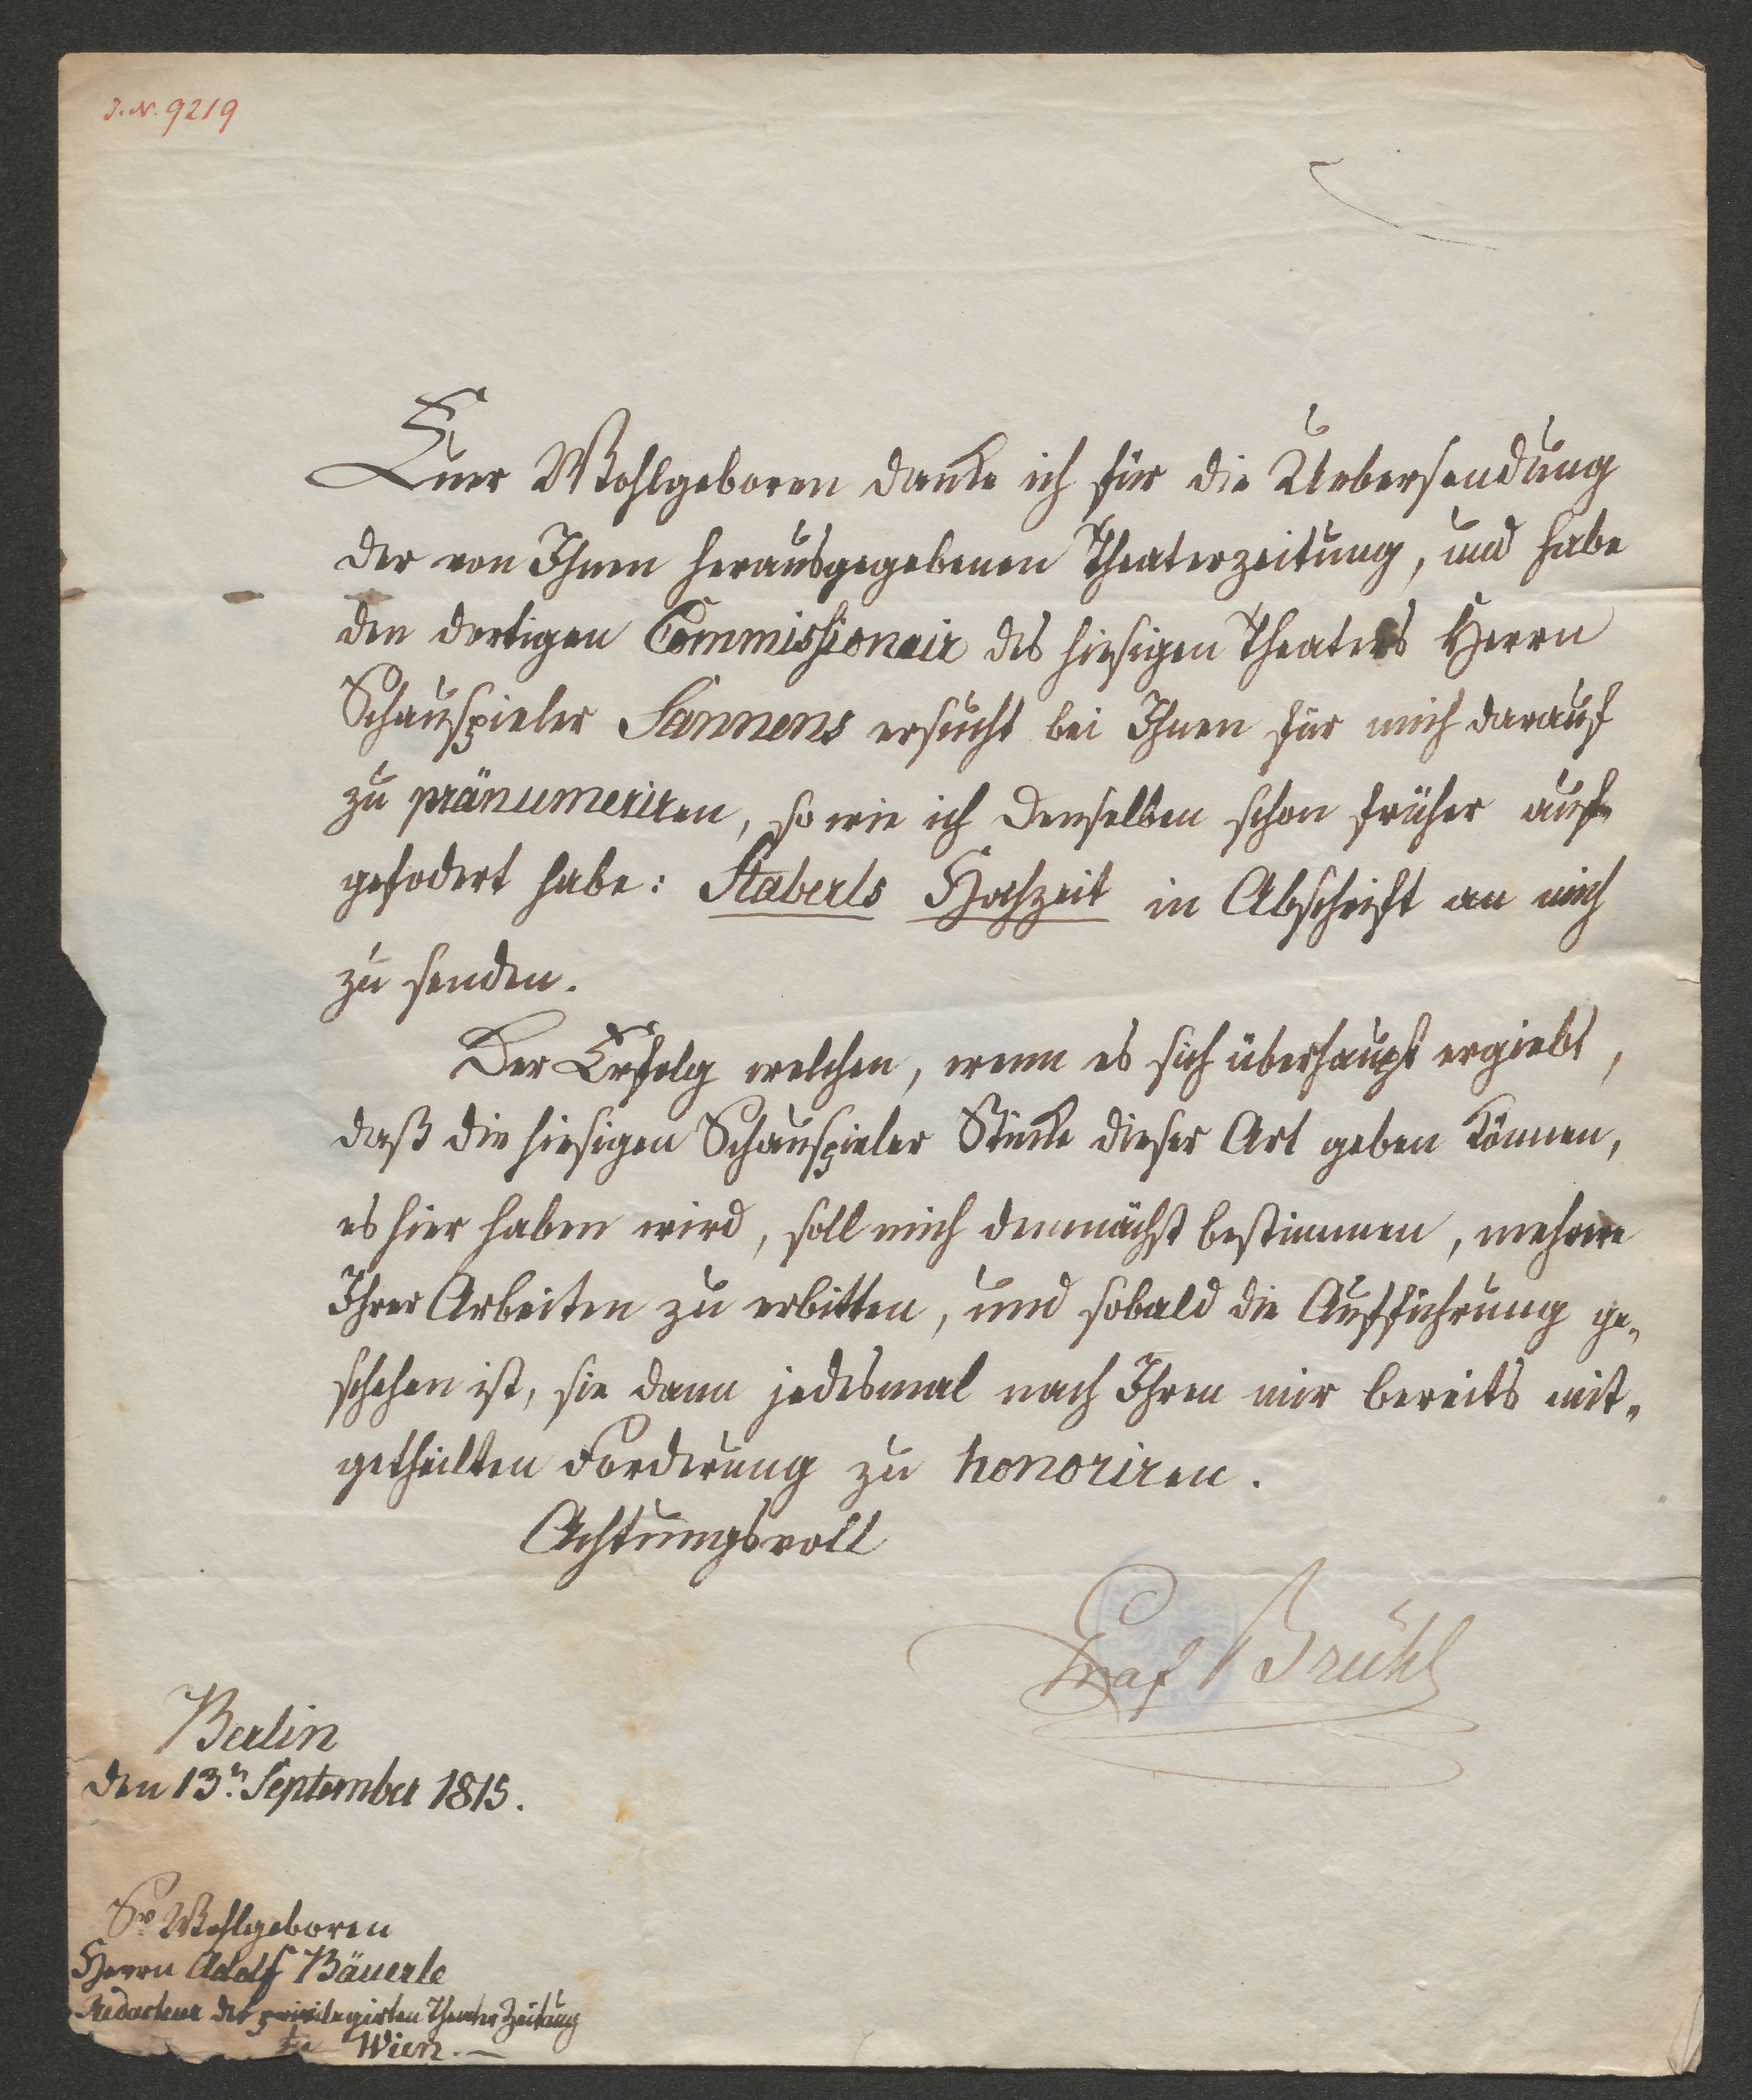 J.N. 9219
Euer Wohlgeboren danke ich für die Uebersendung
der von Ihnen herausgegebenen Theaterzeitung, und habe
den dortigen Commissionair des hiesigen Theaters Herrn
Schauspieler Sannens ersucht bei Ihnen für mich darauf
zu pränumeriren, so wie ich denselben schon früher auf-
gefodert habe: Staberls Hochzeit in Abschrift an mich
zu senden.
Der Erfolg welchen, wenn es sich überhaupt ergiebt,
daß die hiesigen Schauspieler Stücke dieser Art geben können,
es hier haben wird, soll mich demnächst bestimmen, mehrere
Ihrer Arbeiten zu erbitten, und sobald die Aufführung ge-
schehen ist, sie dann jedesmal nach Ihren mir bereits mit-
getheilten Forderung zu honoriren.
Achtungsvoll
Graf Brühl
Berlin
den 13n September 1815.
Sr Wohlgeboren
Herrn Adolf Bäuerle
Redacteur der privilegirten Theater Zeitung
zu Wien.